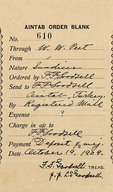 AINTAB ORDER BLANK
No. 610
Through W. W. Peet
From
Nature Sundries
Ordered by F. F. Goodsell
Send to F. F. Goodsell
Aintab, Turkey
By Registered Mail
Expense ?
Charge in a/c to
F. F. Goodsell
Payment Deposit
Date October 19, 1908
F. F. Goodsell TREAS.
Goodsell